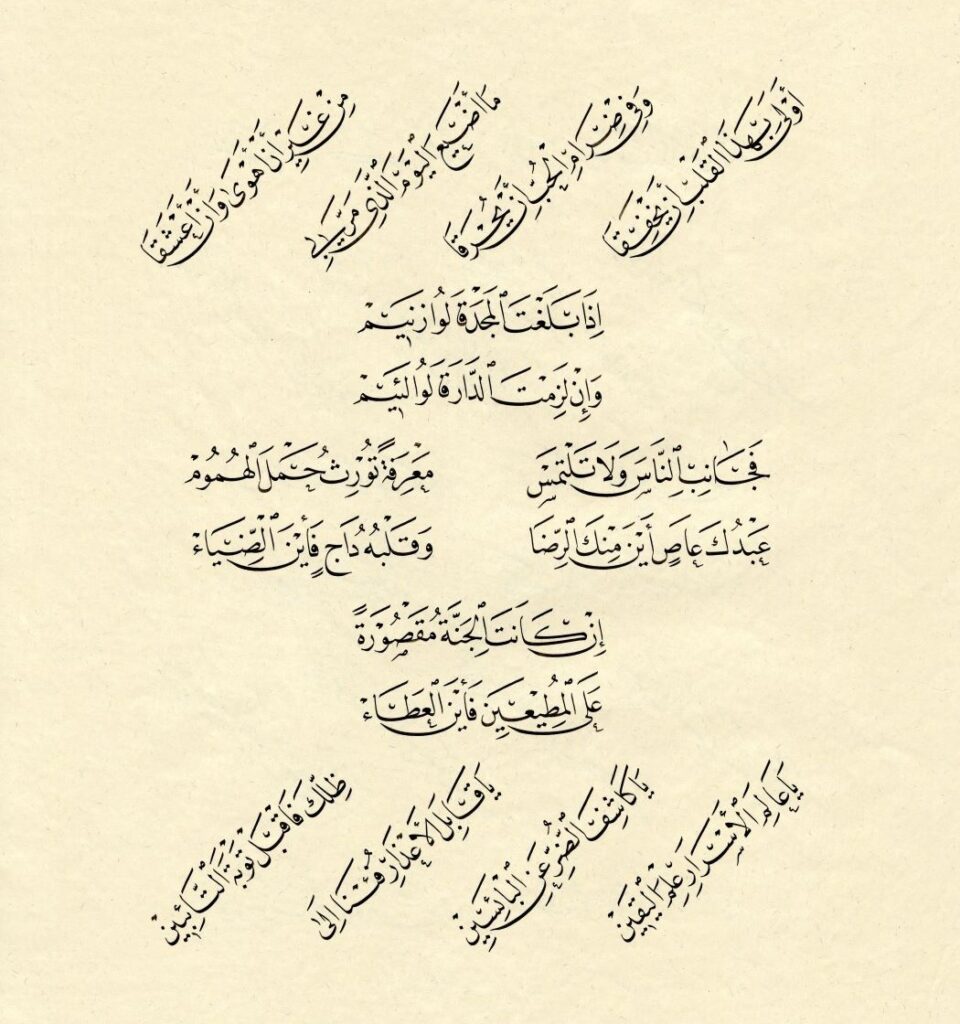 أَوْلَى بِهَذَا الْقَلْبِ أَنْ يَخْفِقَا
وَفِي ضِرَامِ الْحُبِّ أَنْ يُحْرَقَا
مَا أَضْيَعَ الْيَوْمَ الَّذِي مَرَّ بِي
مِنْ غَيْرِ أَنْ أَهْوَى وَأَنْ أَعْشَقَا
إِذَا بَلَغْتَ الْمَجْدَ قَالُوا زَنِيمْ
وَإِنْ لَزِمْتَ الدَّارَ قَالُوا لَئِيمْ
فَجَانِبِ النَّاسَ وَلَا تَلْتَمِسْ
مَعْرِفَةً تُورِثُ حَمْلَ الْهُمُومْ
عَبْدُكَ عَاصٍ أَيْنَ مِنْكَ الرِّضَا
وَقَلْبُهُ دَاجٍ فَأَيْنَ الضِّيَاءْ
إِنْ كَانَتِ الْجَنَّةُ مَقْصُورَةً
عَلَى الْمُطِيعِينَ فَأَيْنَ الْعَطَاءْ
يَا عَالِمَ الْأَسْرَارِ عِلْمَ الْيَقِينْ
يَا كَاشِفَ الضُّرِّ عَنِ الْبَائِسِينْ
يَا قَابِلَ الْأَعْذَارِ فِئْنَا إِلَى
ظِلِّكَ فَاقْبَلْ تَوْبَةَ التَّائِبِينْ